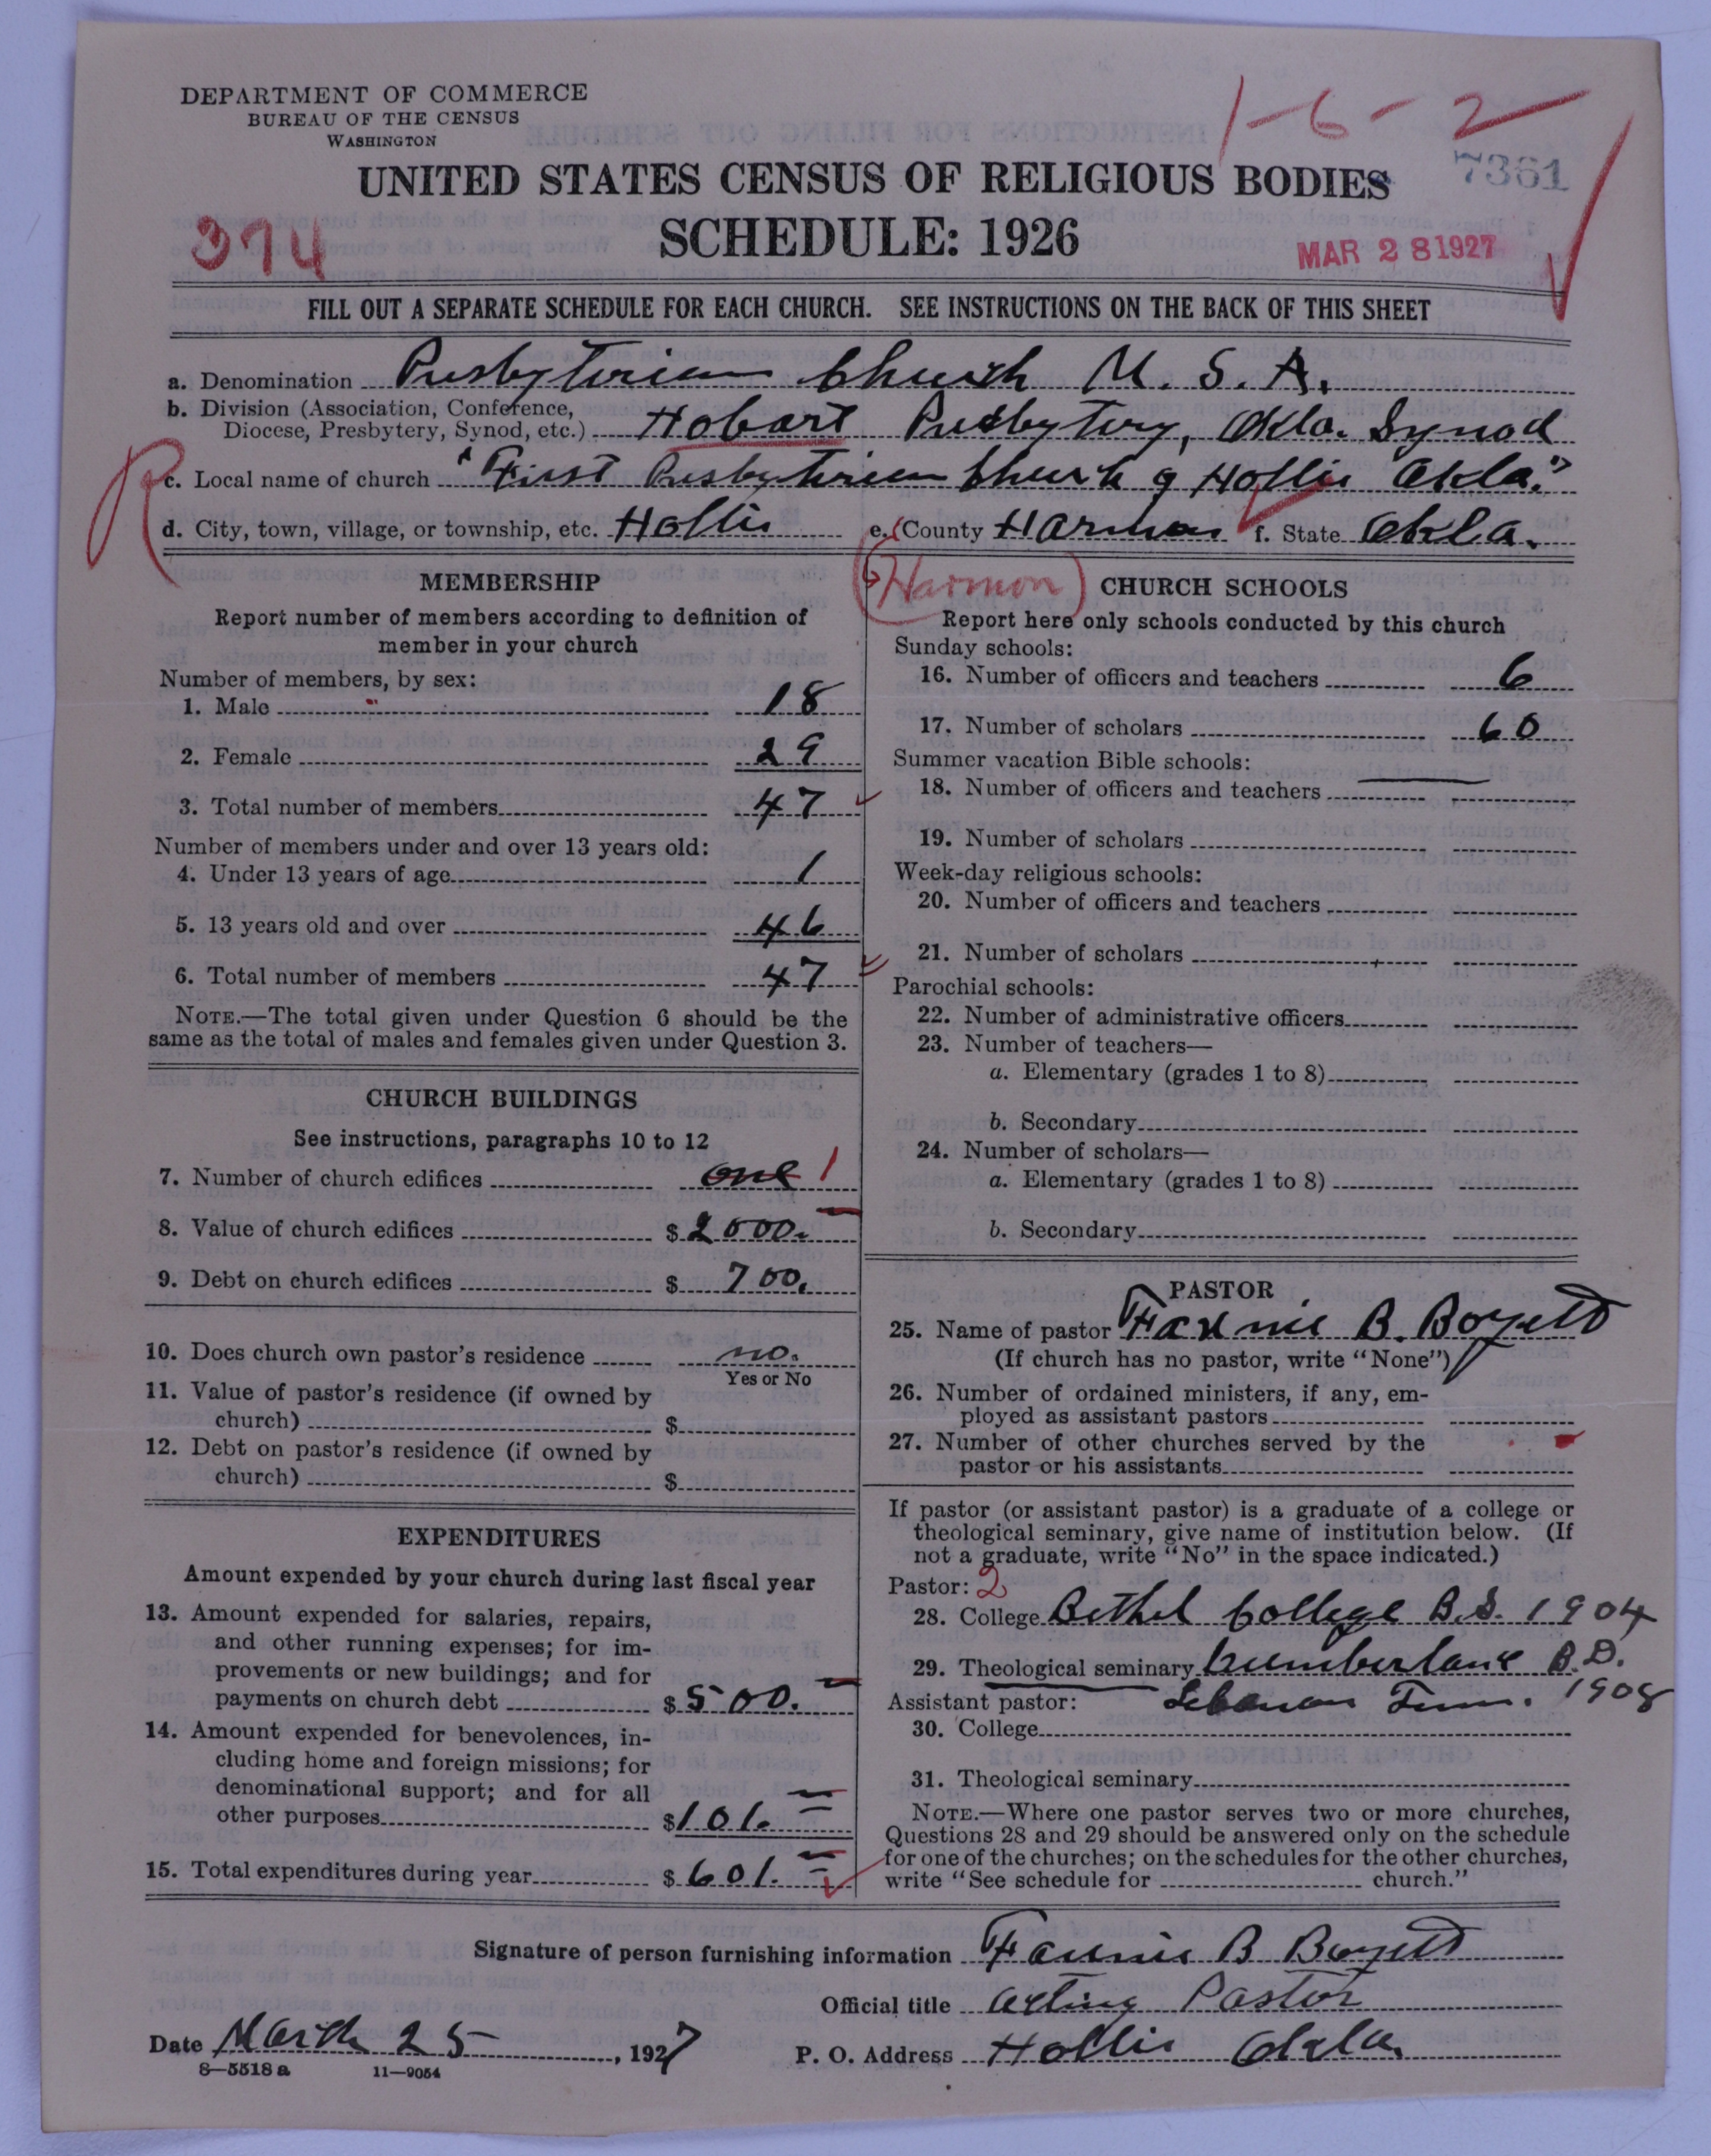 DEPARTMENT OF COMMERCE
BUREAU OF THE CENSUS
WASHINGTON
1-6-2
UNITED STATES CENSUS OF RELIGIOUS BODIES
7361
374
SCHEDULE: 1926
MAR 28 1927
FILL OUT A SEPARATE SCHEDULE FOR EACH CHURCH. SEE INSTRUCTIONS ON THE BACK OF THIS SHEET
a. Denomination Presbyterian Church U. S. A.
b. Division (Association, Conference,
Diocese, Presbytery, Synod, etc.) Hobart Presbytery, Okla. Synod
R
c. Local name of church "First Presbyterian Church of Hollis Okla."
d. City, town, village, or township, etc. Hollis e. County Harmon f. State Okla.
(Harmon)
MEMBERSHIP
Report number of members according to definition of
member in your church
Number of members, by sex:
1. Male 18
2. Female 29
3. Total number of members 47
Number of members under and over 13 years old:
4. Under 13 years of age 1
5. 13 years old and over 46
6. Total number of members 47
NOTE.—The total given under Question 6 should be the
same as the total of males and females given under Question 3.
CHURCH BUILDINGS
See instructions, paragraphs 10 to 12
7. Number of church edifices one 1
8. Value of church edifices $ 2000.
9. Debt on church edifices $ 700.
10. Does church own pastor's residence no.
Yes or No
11. Value of pastor's residence (if owned by
church) $
12. Debt on pastor's residence (if owned by
church) $
EXPENDITURES
Amount expended by your church during last fiscal year
13. Amount expended for salaries, repairs,
and other running expenses; for im-
provements or new buildings; and for
payments on church debt $ 500.
14. Amount expended for benevolences, in-
cluding home and foreign missions; for
denominational support; and for all
other purposes $ 101.
15. Total expenditures during year $ 601.
CHURCH SCHOOLS
Report here only schools conducted by this church
Sunday schools:
16. Number of officers and teachers 6
17. Number of scholars 60
Summer vacation Bible schools:
18. Number of officers and teachers
19. Number of scholars
Week-day religious schools:
20. Number of officers and teachers
21. Number of scholars
Parochial schools:
22. Number of administrative officers
23. Number of teachers—
a. Elementary (grades 1 to 8)
b. Secondary
24. Number of scholars—
a. Elementary (grades 1 to 8)
b. Secondary
PASTOR
25. Name of pastor Fannie B. Boyett
(If church has no pastor, write "None")
26. Number of ordained ministers, if any, em-
ployed as assistant pastors
27. Number of other churches served by the
pastor or his assistants
If pastor (or assistant pastor) is a graduate of a college or
theological seminary, give name of institution below. (If
not a graduate, write "No" in the space indicated.)
Pastor: 2
28. College Bethel College B.S. 1904
29. Theological seminary Cumberland B.D.
Assistant pastor: Lebanon Tenn. 1908
30. College
31. Theological seminary
NOTE.—Where one pastor serves two or more churches,
Questions 28 and 29 should be answered only on the schedule
for one of the churches; on the schedules for the other churches,
write "See schedule for church."
Signature of person furnishing information Fannie B Boyett
Official title Acting Pastor
Date March 25, 1927 P. O. Address Hollis Okla.
8—5518 a 11—9054